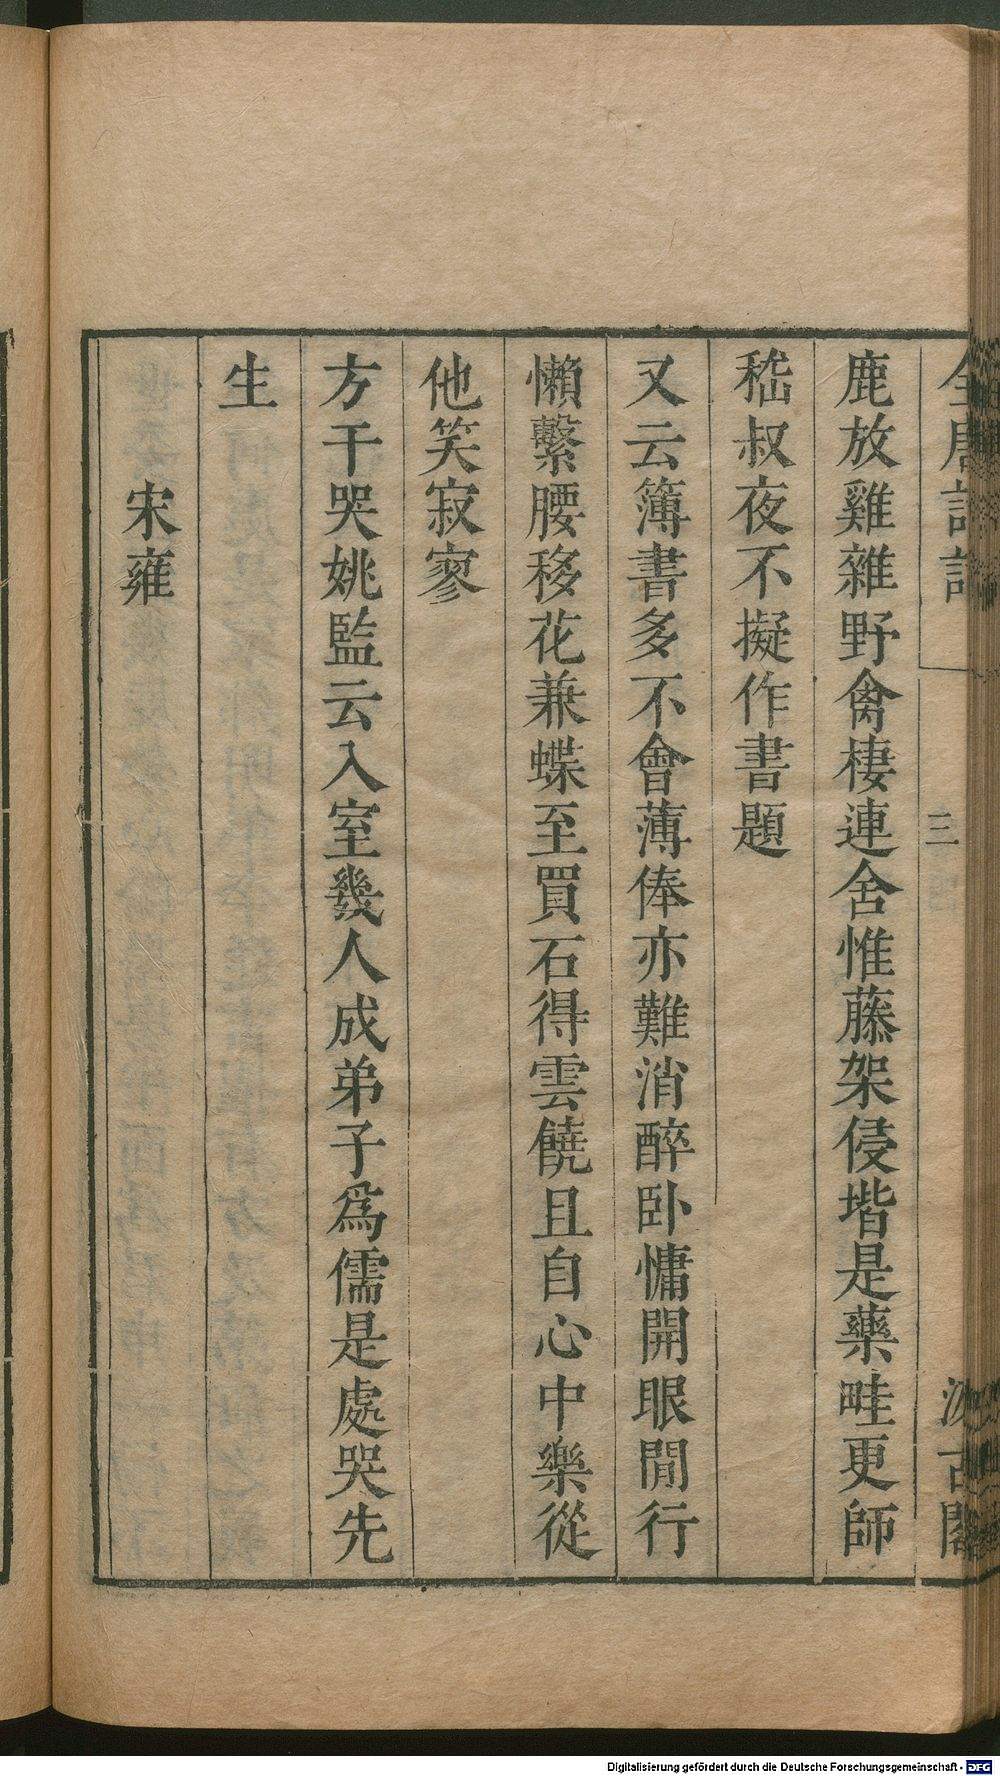 全唐詩話
三
汲古閣
鹿放雞雜野禽棲連舍惟藤架侵堦是藥畦更師
嵇叔夜不擬作書題
又云簿書多不會薄俸亦難消醉卧慵開眼閒行
懶繫腰移花兼蝶至買石得雲饒且自心中樂從
他笑寂寥
方干哭姚監云入室幾人成弟子為儒是處哭先
生
宋雍
Digitalisierung gefördert durch die Deutsche Forschungsgemeinschaft - DFG